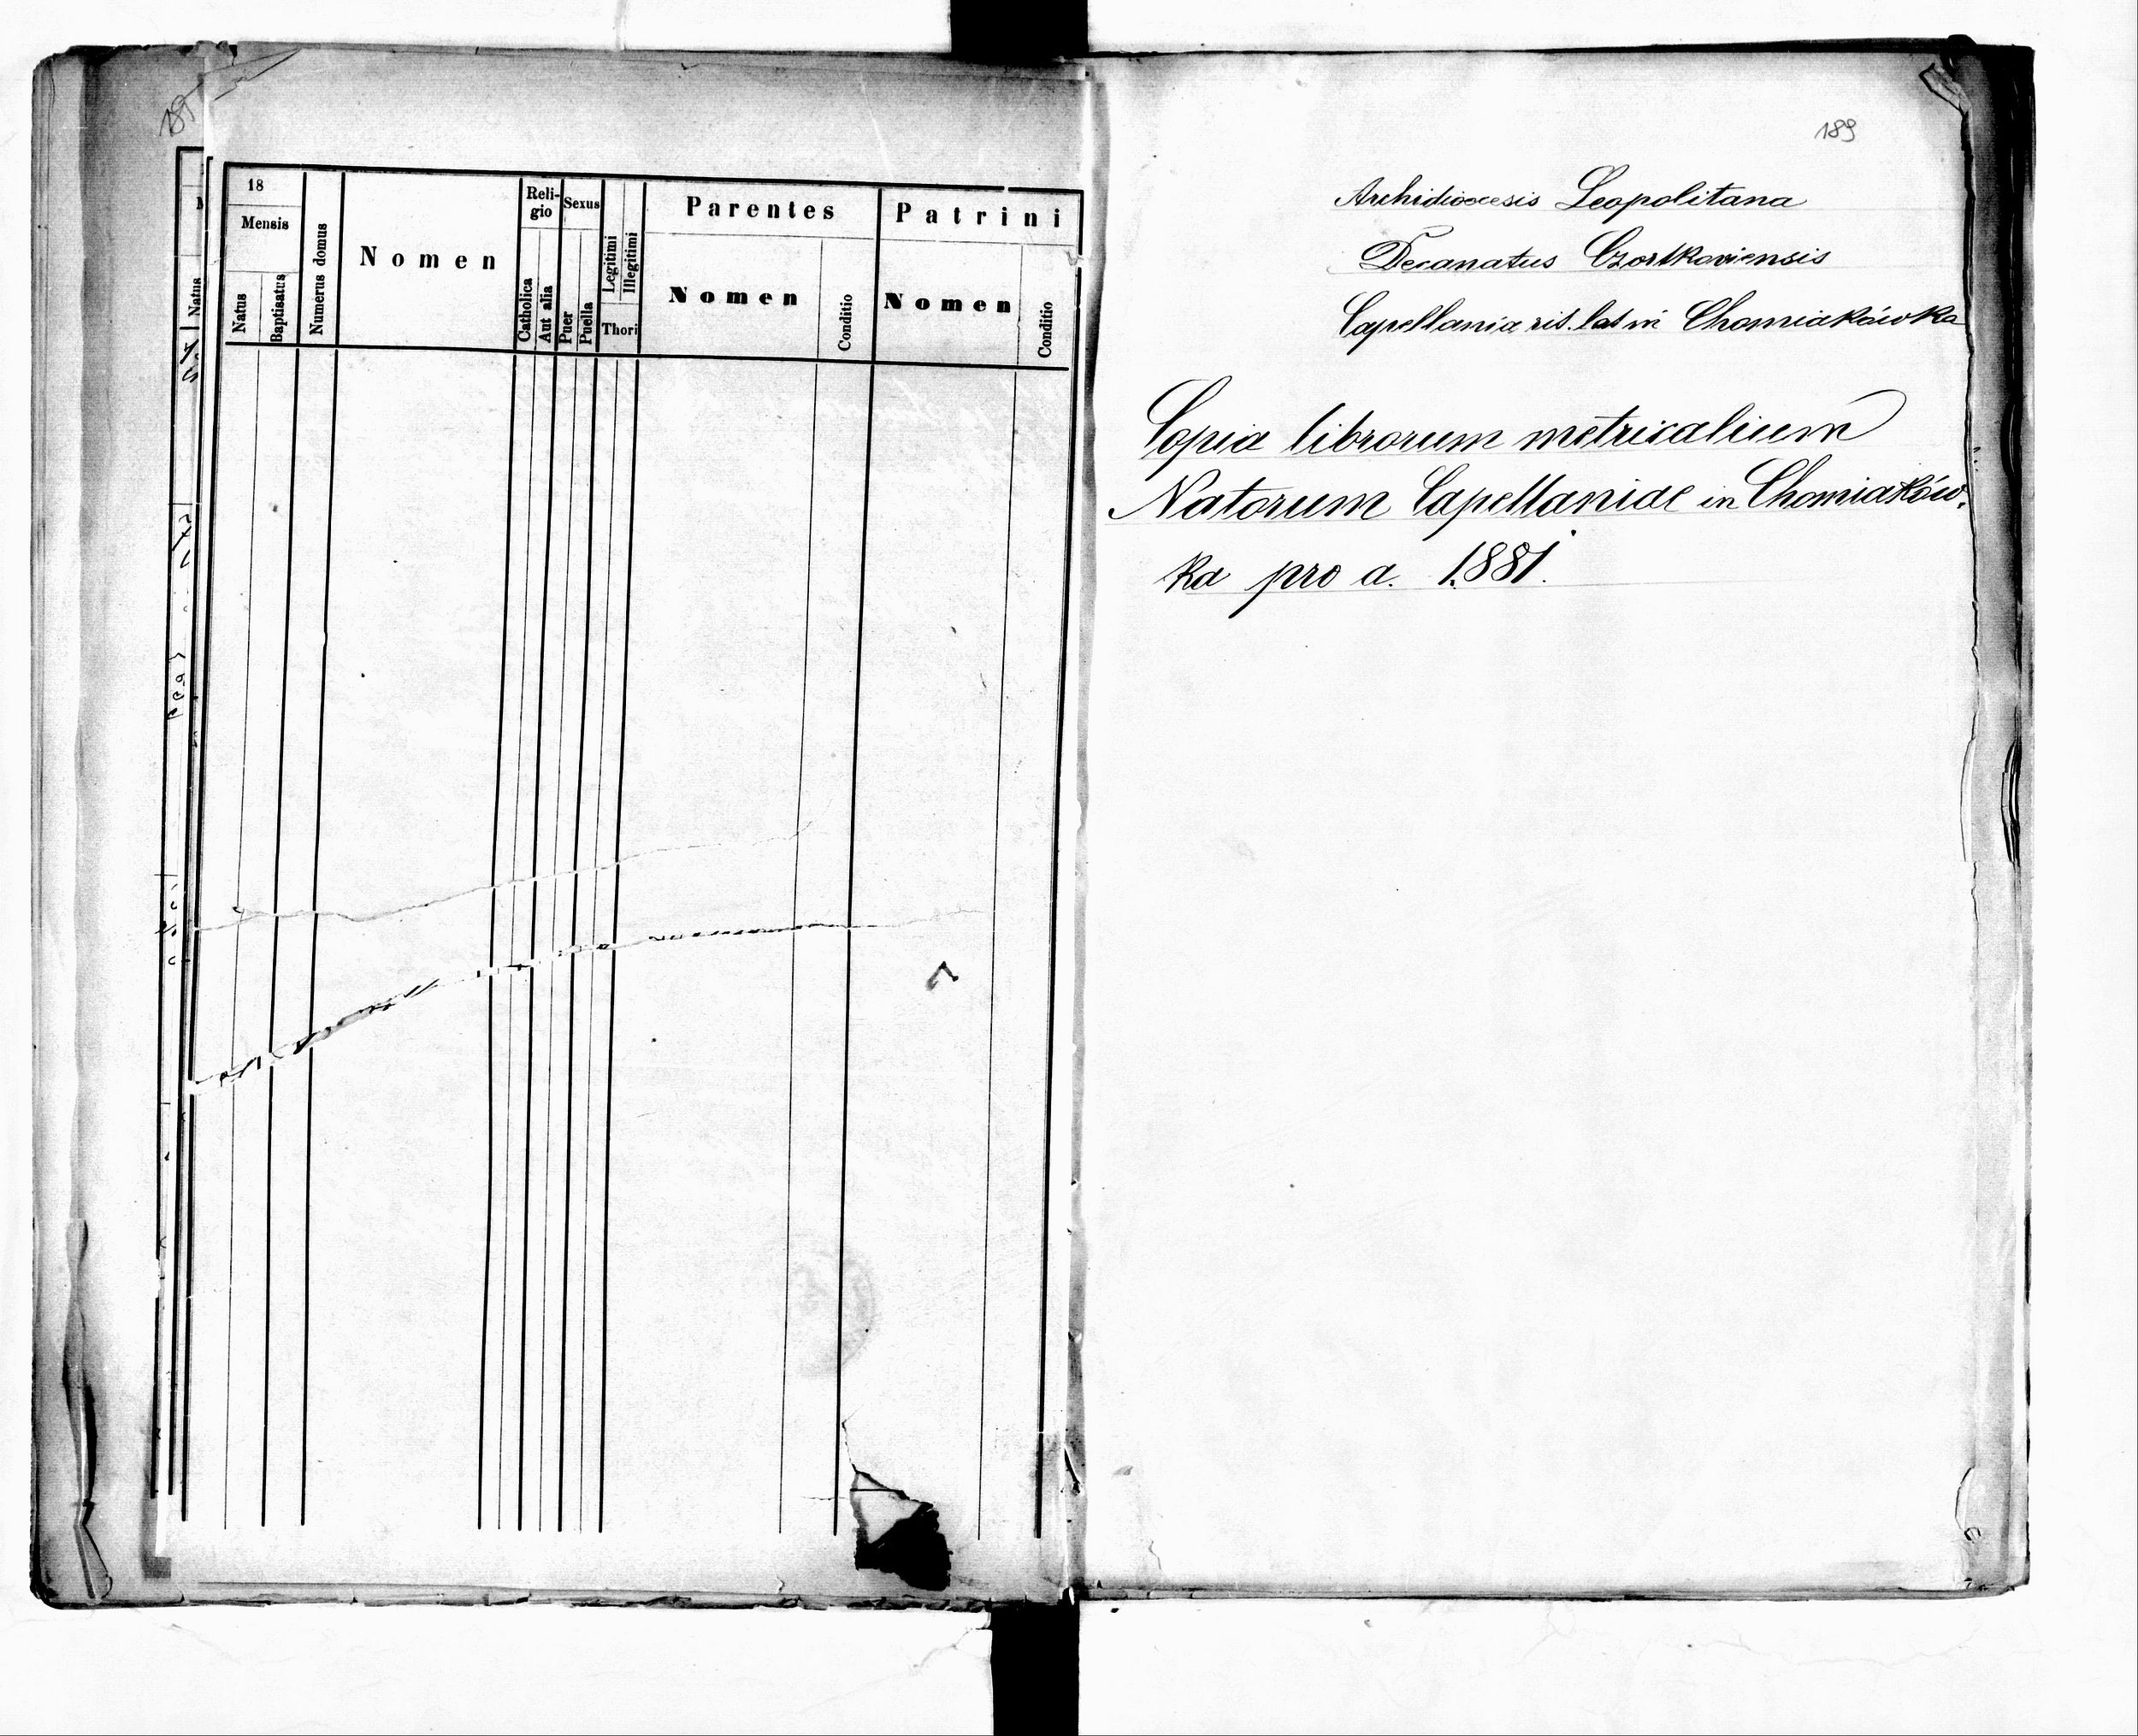 189
18
Mensis
Natus
Baptisatus
Numerus domus
Nomen
Religio
Catholica
Aut alia
Sexus
Puer
Puella
Legitimi
Illegitimi
Thori
Parentes
Nomen
Conditio
Patrini
Nomen
Conditio
Natus
Archidioecesis Leopolitana
Decanatus Czortkoviensis
Capellania rit. lat in Chomiakówka
Copia librorum metricalium
Natorum Capellaniae in Chomiaków-
ka pro a. 1881.